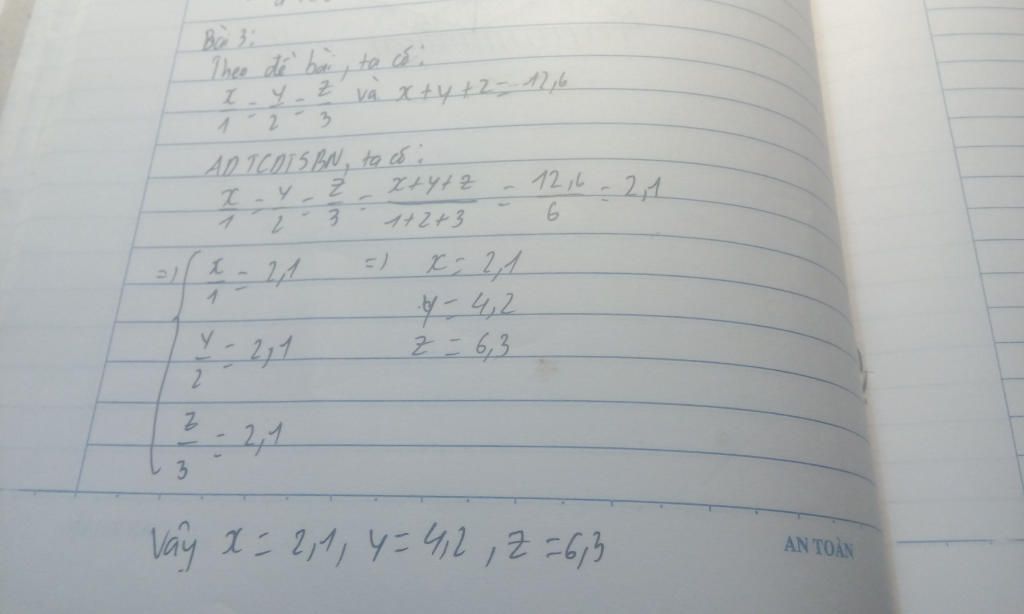 Bài 3:
Theo đề bài, ta có:
x/1 = y/2 = z/3 và x+y+z = 12,6
ADTCDTSBN, ta có:
x/1 = y/2 = z/3 = x+y+z/1+2+3 = 12,6/6 = 2,1
=> { x/1 = 2,1 => x = 2,1
y = 4,2
y/2 = 2,1 z = 6,3
z/3 = 2,1
Vậy x = 2,1, y = 4,2, z = 6,3
AN TOÀN